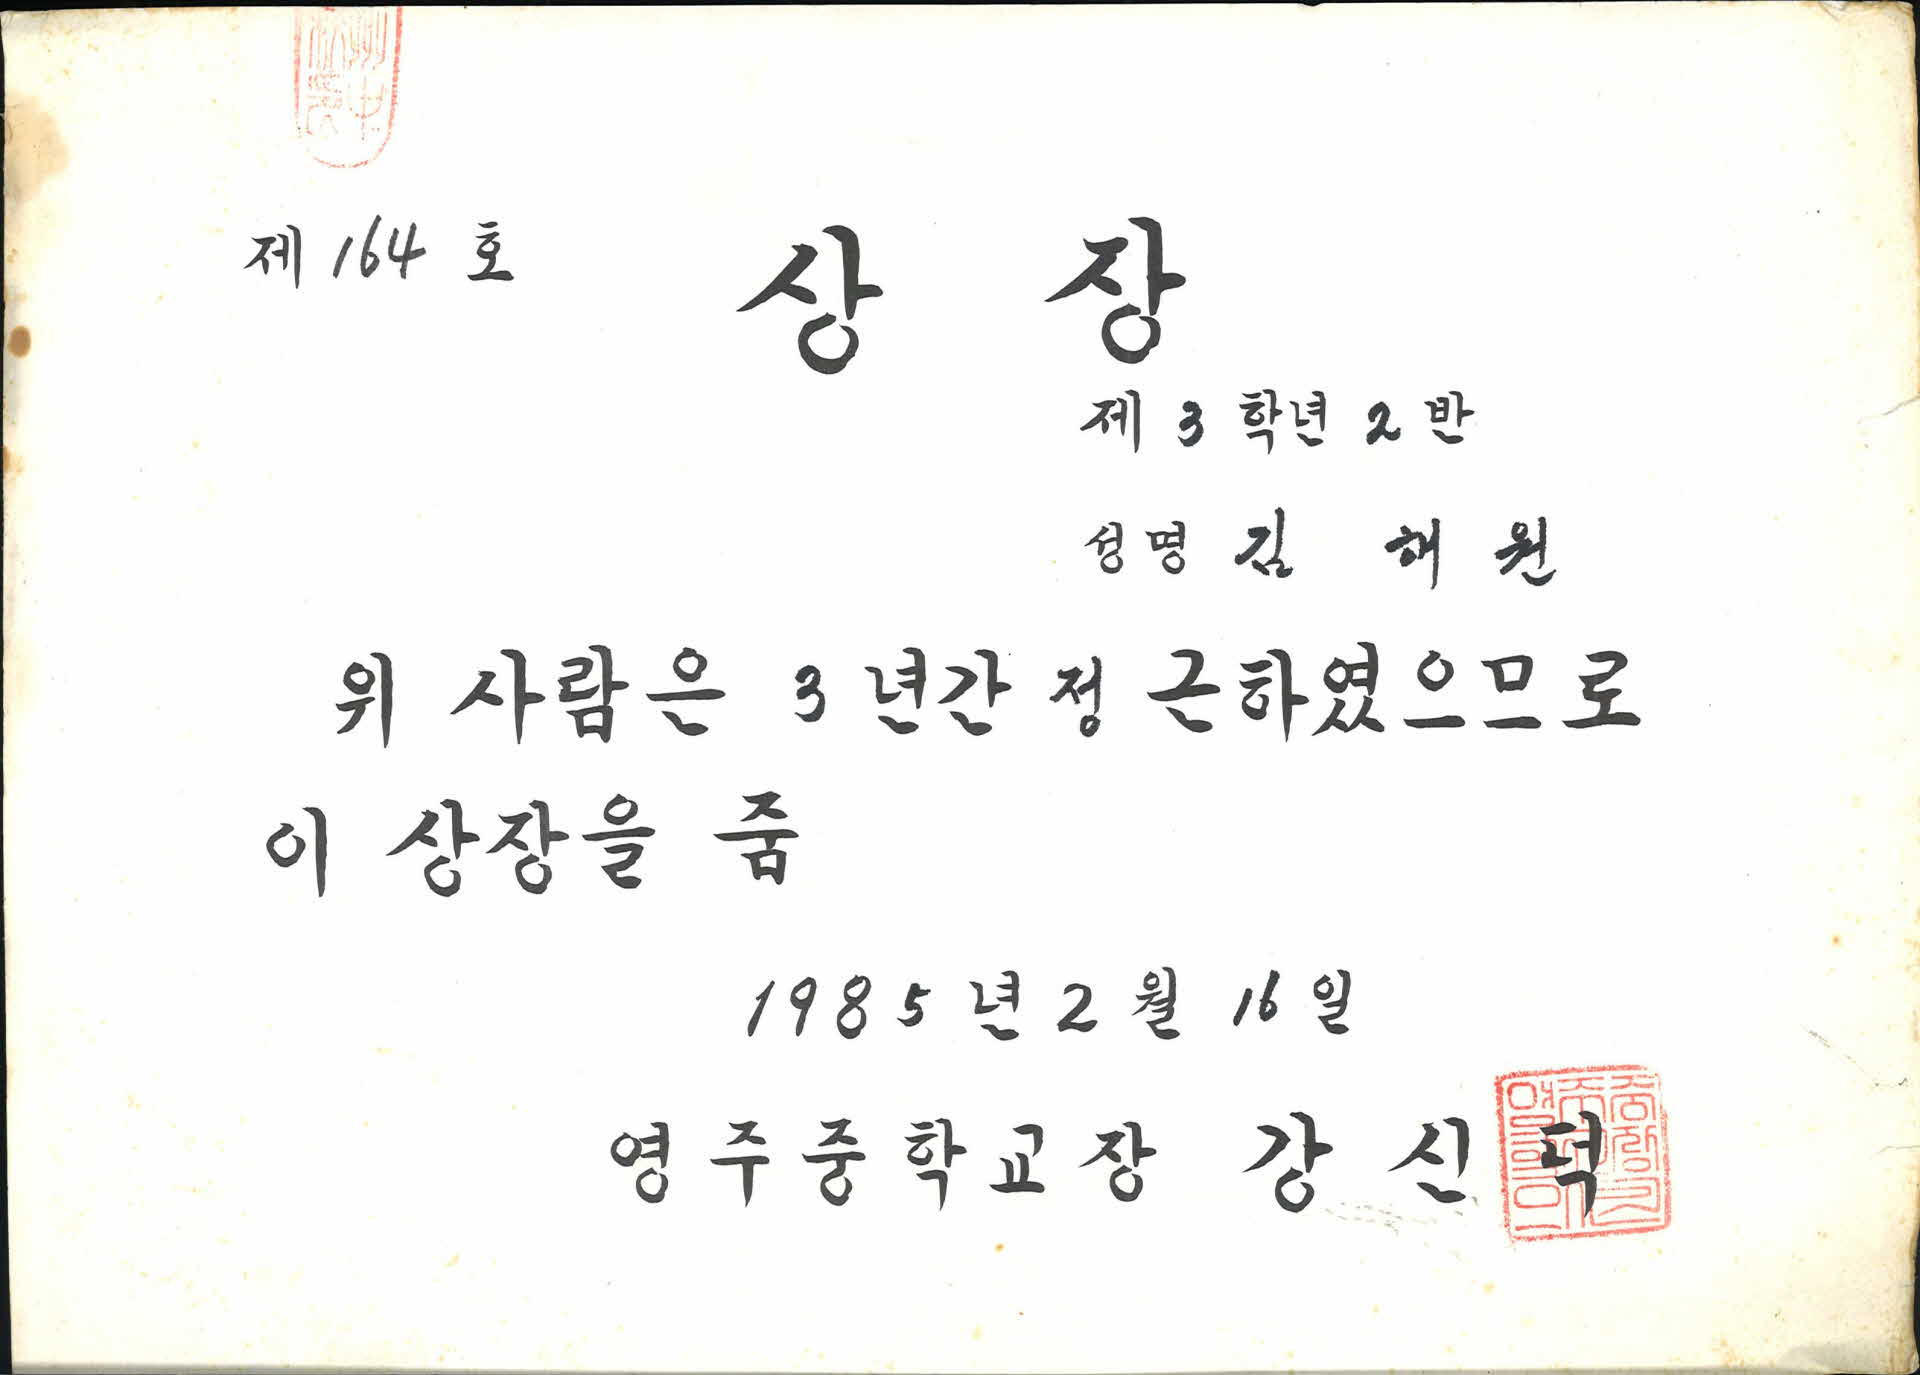 제 164 호
상 장
제 3 학년 2 반
성명 김 해 원
위 사람은 3 년간 정 근하였으므로
이 상장을 줌
1985 년 2 월 16 일
영주중학교장 강 신 덕